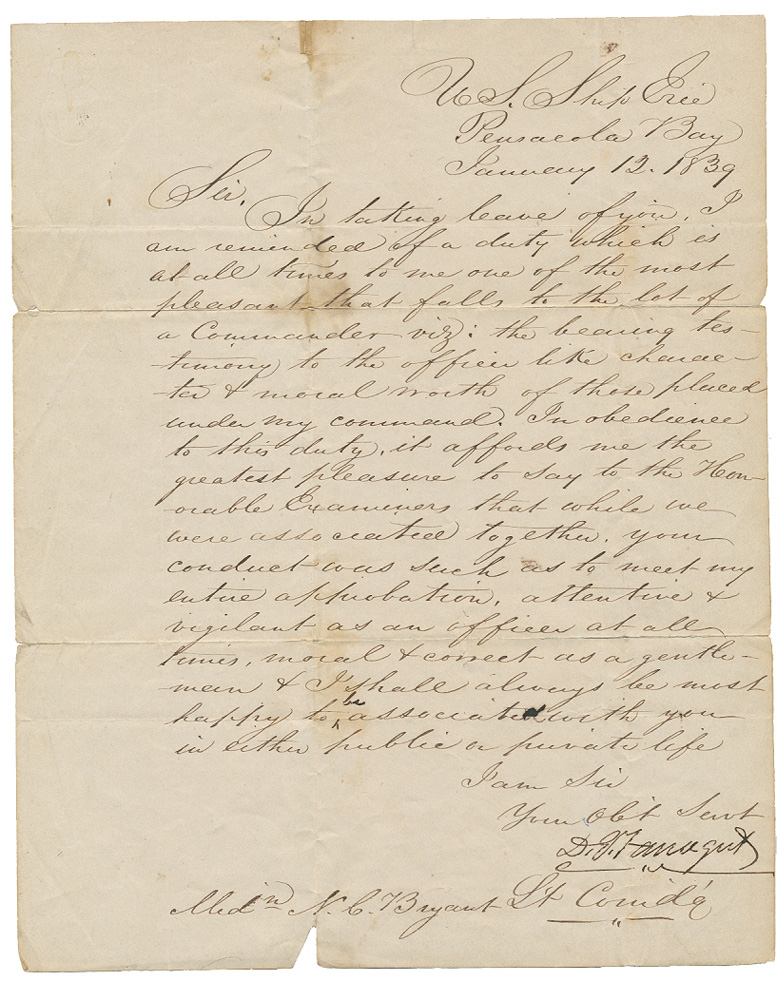 U S. Ship Erie
Pensacola Bay
January 12. 1839
Sir,
In taking leave of you, I
am reminded of a duty which is
at all times to me one of the most
pleasant that falls to the lot of
a Commander viz: the bearing tes-
timony to the officer like charac-
ter & moral worth of those placed
under my command. In obedience
to this duty, it affords me the
greatest pleasure to say to the Hon-
orable Examiners that while we
were associated together, your
conduct was such as to meet my
entire approbation, attentive &
vigilant as an officer at all
times, moral & correct as a gentle-
man & I shall always be most
happy to be associated with you
in either public or private life
I am Sir
Your Obt Servt
D. G. Farragut
Lt Comd'g
Midn N. C. Bryant